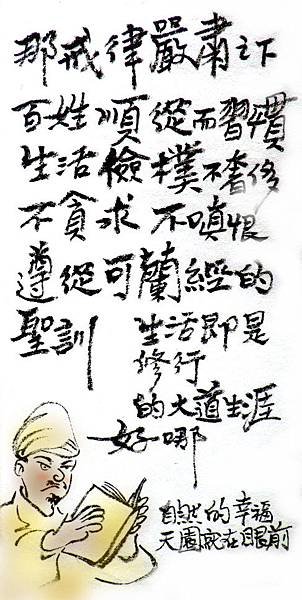 那戒律嚴肅之下
百姓順從而習慣
生活儉樸不奢侈
不貪求不嗔恨
遵從可蘭經的
聖訓
生活即是
修行
的大道生涯
好哪
自然的幸福
天園就在眼前